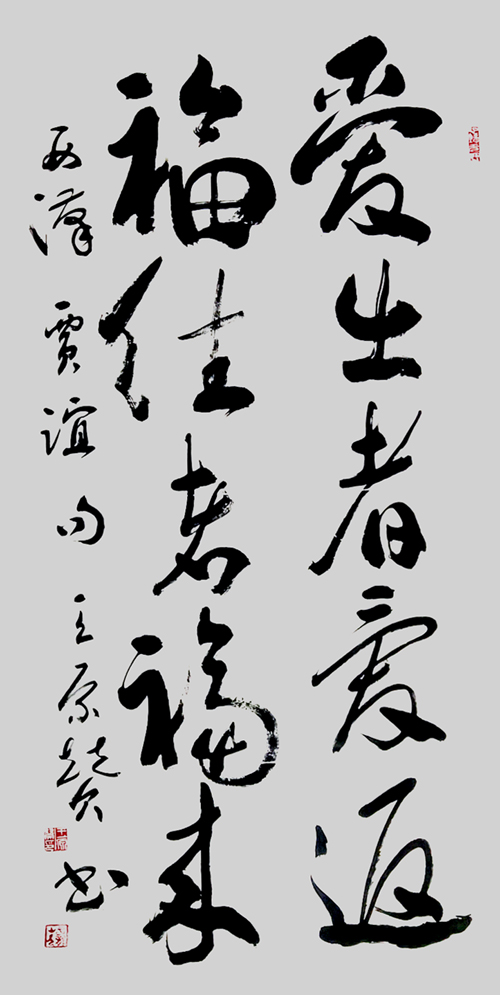 爱出者爱返
福往者福来
西漢 贾谊句 王原赞书